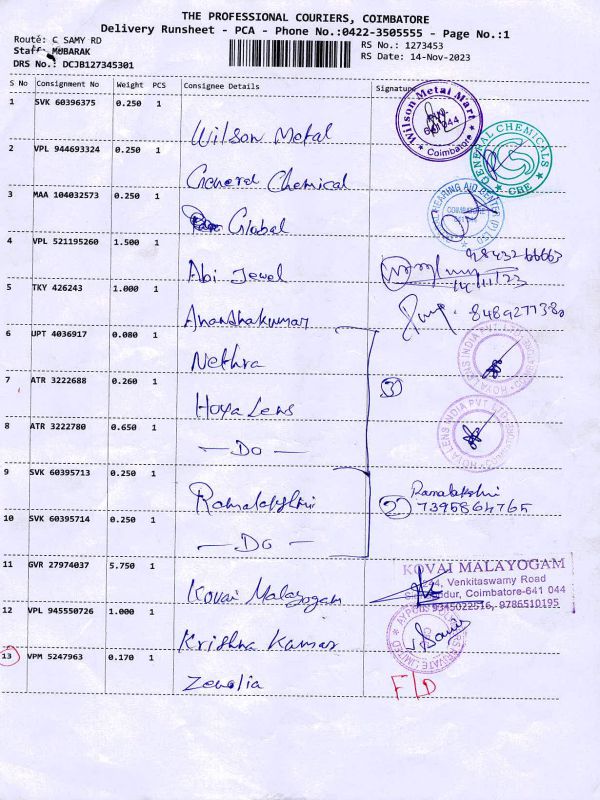 THE PROFESSIONAL COURIERS, COIMBATORE
Delivery Runsheet - PCA - Phone No.:0422-3505555 - Page No.:1
Route: C SAMY RD
Staff: MUBARAK
DRS No.: DCJB127345301
RS No.: 1273453
RS Date: 14-Nov-2023
S No Consignment No Weight PCS Consignee Details Signature
1 SVK 60396375 0.250 1 Wilson Metal
Wilson Metal Mart 641 044 Coimbatore
2 VPL 944693324 0.250 1 General Chemical
GENERAL CHEMICALS CBE
3 MAA 104032573 0.250 1 Global
HEARING AID CENTRE (P) LTD COIMBATORE
4 VPL 521195260 1.500 1 Abi Jewel
9843266663
14/11/23
5 TKY 426243 1.000 1 Ananthakumar
8489271380
6 UPT 4036917 0.080 1 Nethra
7 ATR 3222688 0.260 1 Hoya Lens
3
HOYA LENS INDIA PVT. LTD
8 ATR 3222780 0.650 1 — Do —
HOYA LENS INDIA PVT. LTD
9 SVK 60395713 0.250 1 Ramalakshmi
2 Ramalakshmi
7395864765
10 SVK 60395714 0.250 1 — Do —
11 GVR 27974037 5.750 1 Kovai Malayogam
KOVAI MALAYOGAM
244, Venkitaswamy Road
Coimbatore-641 044
9345022516, 9786510195
12 VPL 945550726 1.000 1 Krishna Kumar
PRIVATE LIMITED
13 VPM 5247963 0.170 1 Zenolia
F/D